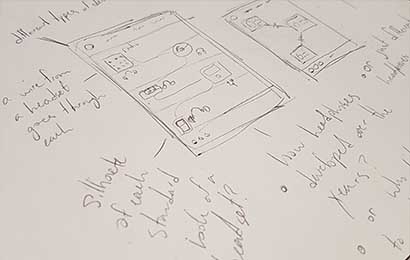 different types of
a wire from
a headset
goes through
each
Silhoete
of each
standard
look of a
headset?
• How headphones
developed over the
years?
• or just different
headphones
• or
to